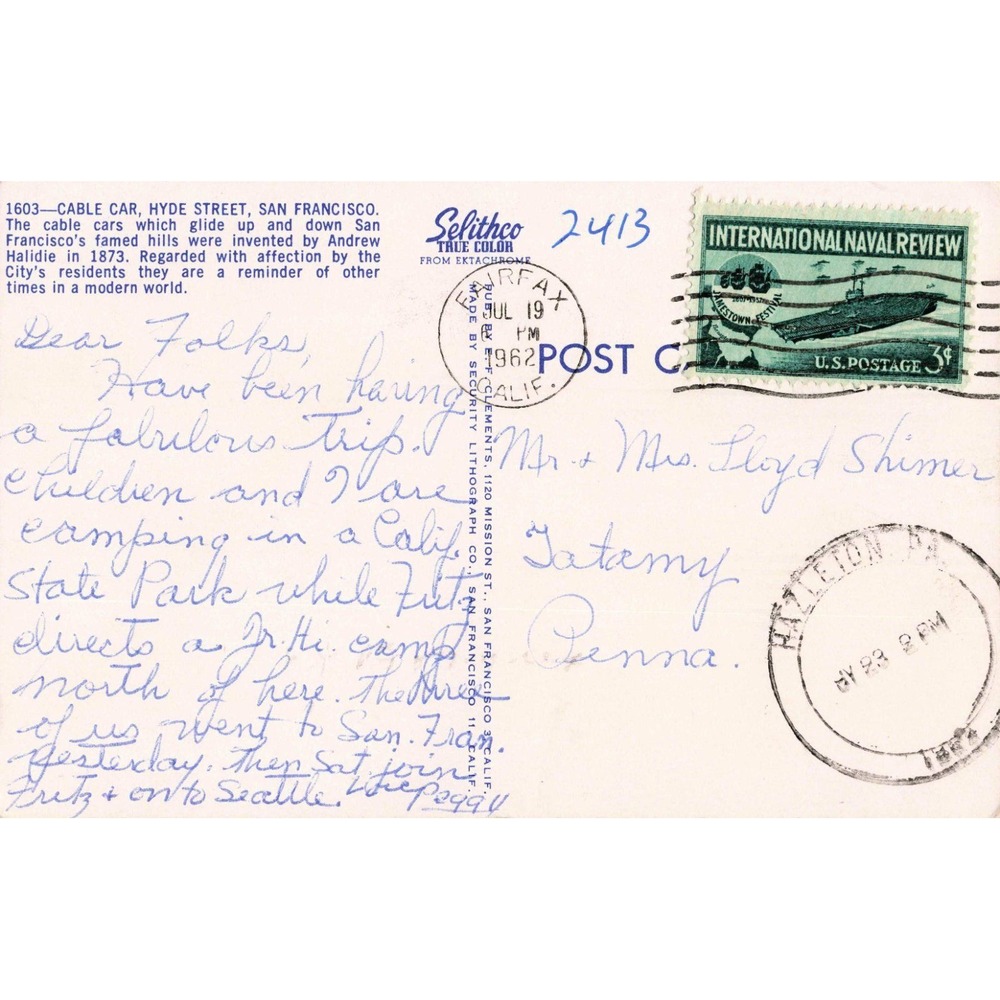 1603—CABLE CAR, HYDE STREET, SAN FRANCISCO.
The cable cars which glide up and down San
Francisco's famed hills were invented by Andrew
Halidie in 1873. Regarded with affection by the
City's residents they are a reminder of other
times in a modern world.
Selithco
TRUE COLOR
FROM EKTACHROME
2413
INTERNATIONAL NAVAL REVIEW
JAMESTOWN FESTIVAL
1607-1957
U.S. POSTAGE 3¢
FAIRFAX
JUL 19
PM
1962
CALIF.
POST C
PUB. BY E. F. CLEMENTS, 1120 MISSION ST., SAN FRANCISCO 3, CALIF.
MADE BY SECURITY LITHOGRAPH CO., SAN FRANCISCO 11, CALIF.
Dear Folks,
Have been having
a fabulous trip.
Children and I are
camping in a Calif.
State Park while Fritz
directs a Jr. Hi. camp
north of here. The three
of us went to San. Fran.
yesterday. Then Sat join
Fritz + on to Seattle. Love Peggy
Mr. + Mrs. Lloyd Shimer
Tatamy
Penna.
HAZLETON, PA
23 2 PM